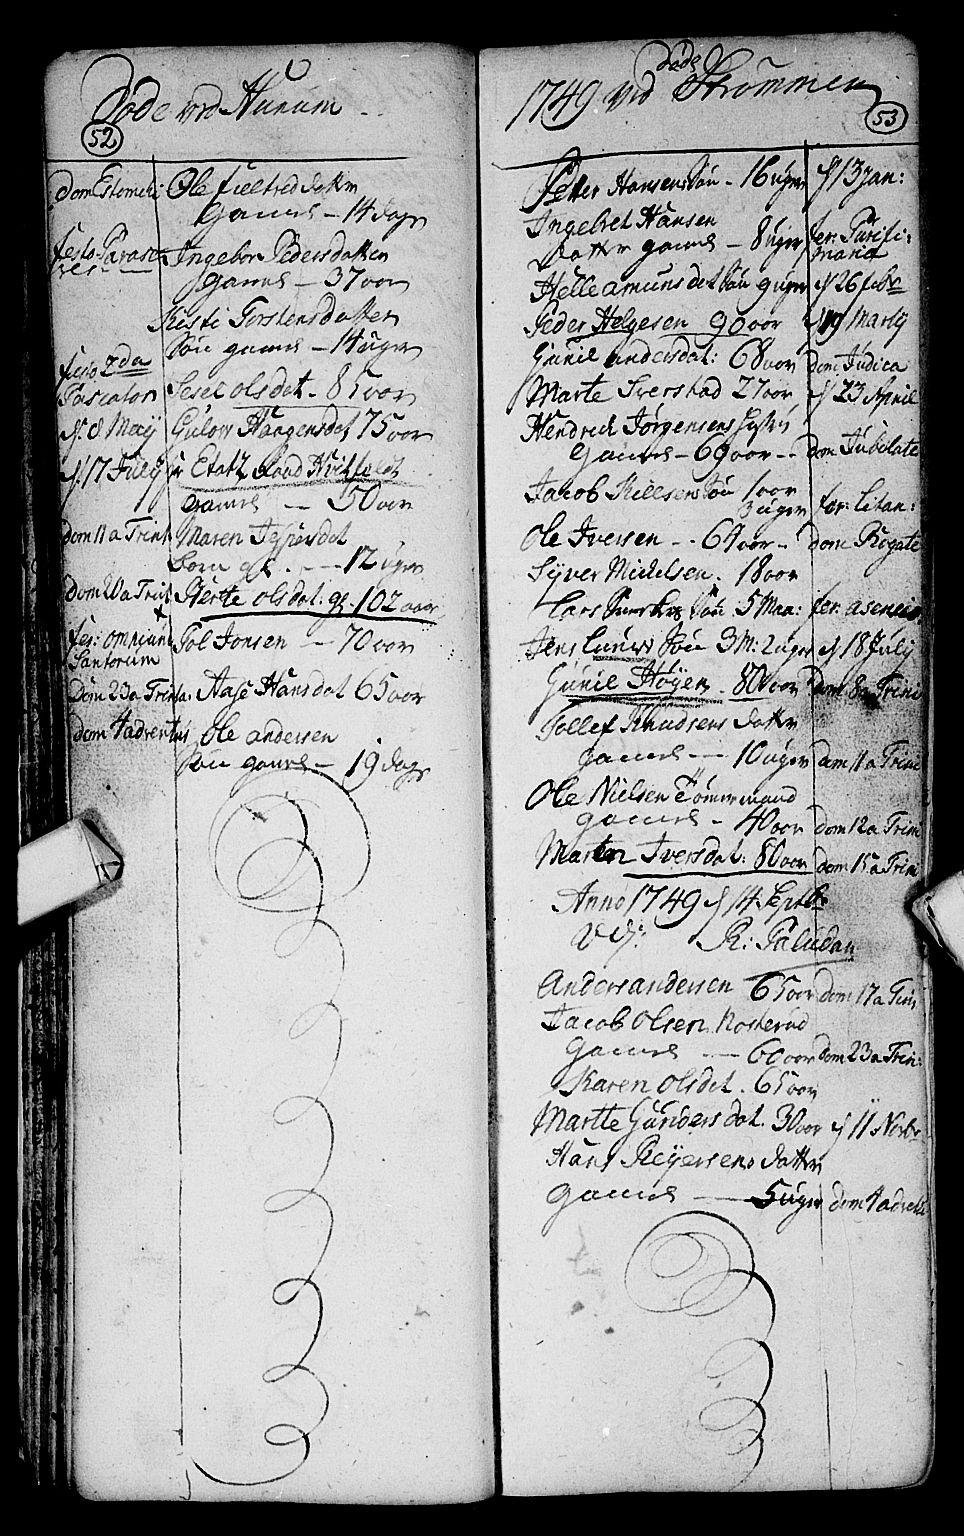 Døde ved Hurum
52
dom Estomihi: Ole fieltred datter
gaml - 14 dage
festo Parasceves Ingebor Pedersdatter
gaml - 37 aar
Kisti Torstensdatter
Søn gaml - 14 uger
festo 2da
Pascatos Sesel olsdat. 85 aar
d. 8 Maij Gulow Haagensdat 75 aar
d. 17 July fr Etatz Raad Hvitfeldt
gaml - 50 aar
dom 11 a Trinit Maren Jespersdat
barn gl. - 12 uger
dom 20 a Trinit Sterte olsdat. gl. 102 aar
fest: omnium Tol Jonsen - 70 aar
Santorum
Dom 23 a Trinita: Aase Hansdat 65 aar
dom 4 adventus Ole andersen
Søn gaml - 19 dage
døde
1749 ved Strømmen
53
Peter Hansens Søn - 16 uger d 13 jan:
Ingebret Hansen
datter gaml - 8 uger fer: Purifi:
maria
Helle amundsdat Søn 9 uger d 26 febr
Peder Helgesen 90 aar d 19 Marty
Gunil andersdat: 68 aar dom Judica
Marte Sverstad 27 aar d 23 April
Hendrich Jørgensens
gaml - 69 aar - dom Jubilate
Jacob Nielsens Søn 1 aar
3 uger fer: Litan:
Ole Iversen - 69 aar - dom Rogate
Syver Michelsen. 18 aar
Lars Søn 5 Maa: fer: asensio
Jens Søn 3 M: 2 uger d 18 July
Gunil Høyen 80 aar dom 8 a Trini
Tollef Knudsens datter
gaml - 10 uger dom 11 a Trini
Ole Nielsen Tømermand
gaml - 40 aar dom 12 a Trini
Marten Iversdat: 80 aar dom 15 a Trini
Anno 1749 d 14 Septbr
R: Paludan
Anders andersen 65 aar dom 17 a Trin
Jacob olsen Rosterud
gaml - 60 aar dom 23 a Trin:
Karen olsdat. 65 aar
Martte Gundersdat. 30 aar d 11 Novbr
Hans Reyersens datter
gaml - 5 uger dom 4 advent